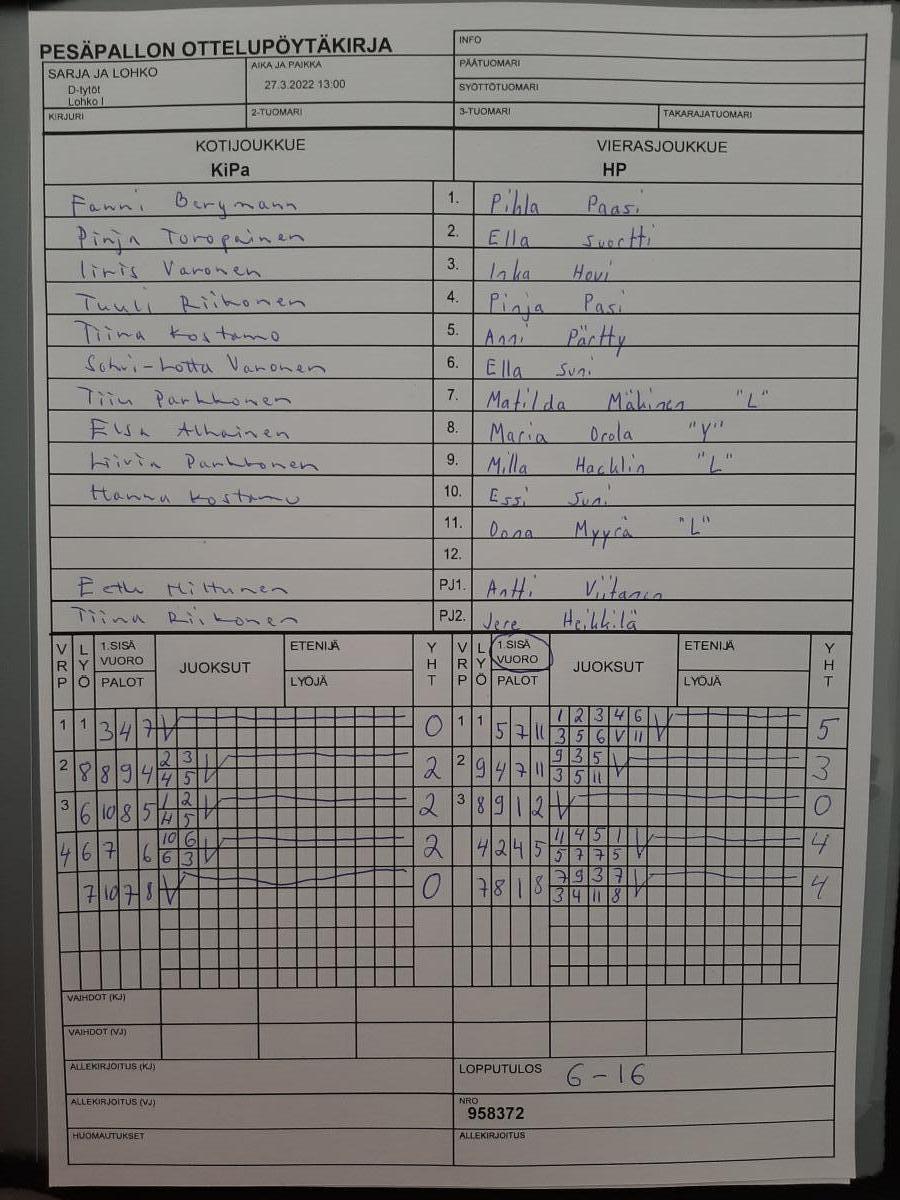 PESÄPALLON OTTELUPÖYTÄKIRJA
INFO
SARJA JA LOHKO
D-tytöt
Lohko I
AIKA JA PAIKKA
27.3.2022 13:00
PÄÄTUOMARI
SYÖTTÖTUOMARI
KIRJURI 2-TUOMARI 3-TUOMARI TAKARAJATUOMARI
KOTIJOUKKUE VIERASJOUKKUE
KiPa HP
Fanni Bergmann 1. Pihla Paasi
Pinja Toropainen 2. Ella Suortti
Iiris Varonen 3. Inka Hovi
Tuuli Riikonen 4. Pinja Pasi
Tiina Kostamo 5. Anni Pärtty
Sohvi-Lotta Varonen 6. Ella Suni
Tiiu Parkkonen 7. Matilda Mäkinen "L"
Elsa Alhainen 8. Maria Orola "Y"
Liivia Parkkonen 9. Milla Hacklin "L"
Hanna Kostamo 10. Essi Suni
11. Oona Myyrä "L"
12.
Eetu Hiltunen PJ1. Antti Viitanen
Tiina Riikonen PJ2. Jere Heikkilä
VRP LYÖ 1.SISÄ VUORO PALOT JUOKSUT ETENIJÄ LYÖJÄ YHT VRP LYÖ 1.SISÄ VUORO PALOT JUOKSUT ETENIJÄ LYÖJÄ YHT
1 2 3 4 6
1 1 3 4 7 V 0 1 1 5 7 11 V 5
3 5 6 V 11
2 3 9 3 5
2 8 8 9 4 V 2 2 9 4 7 11 V 3
4 5 3 5 11
1 2
3 6 10 8 5 V 2 3 8 9 1 2 V 0
4 5
10 6 11 4 5 1
4 6 7 6 V 2 4 2 4 5 V 4
6 3 5 7 7 5
7 9 3 7
7 10 7 8 V 0 7 8 1 8 V 4
3 4 11 8
VAIHDOT (KJ)
VAIHDOT (VJ)
ALLEKIRJOITUS (KJ) LOPPUTULOS 6-16
ALLEKIRJOITUS (VJ) NRO
958372
HUOMAUTUKSET ALLEKIRJOITUS